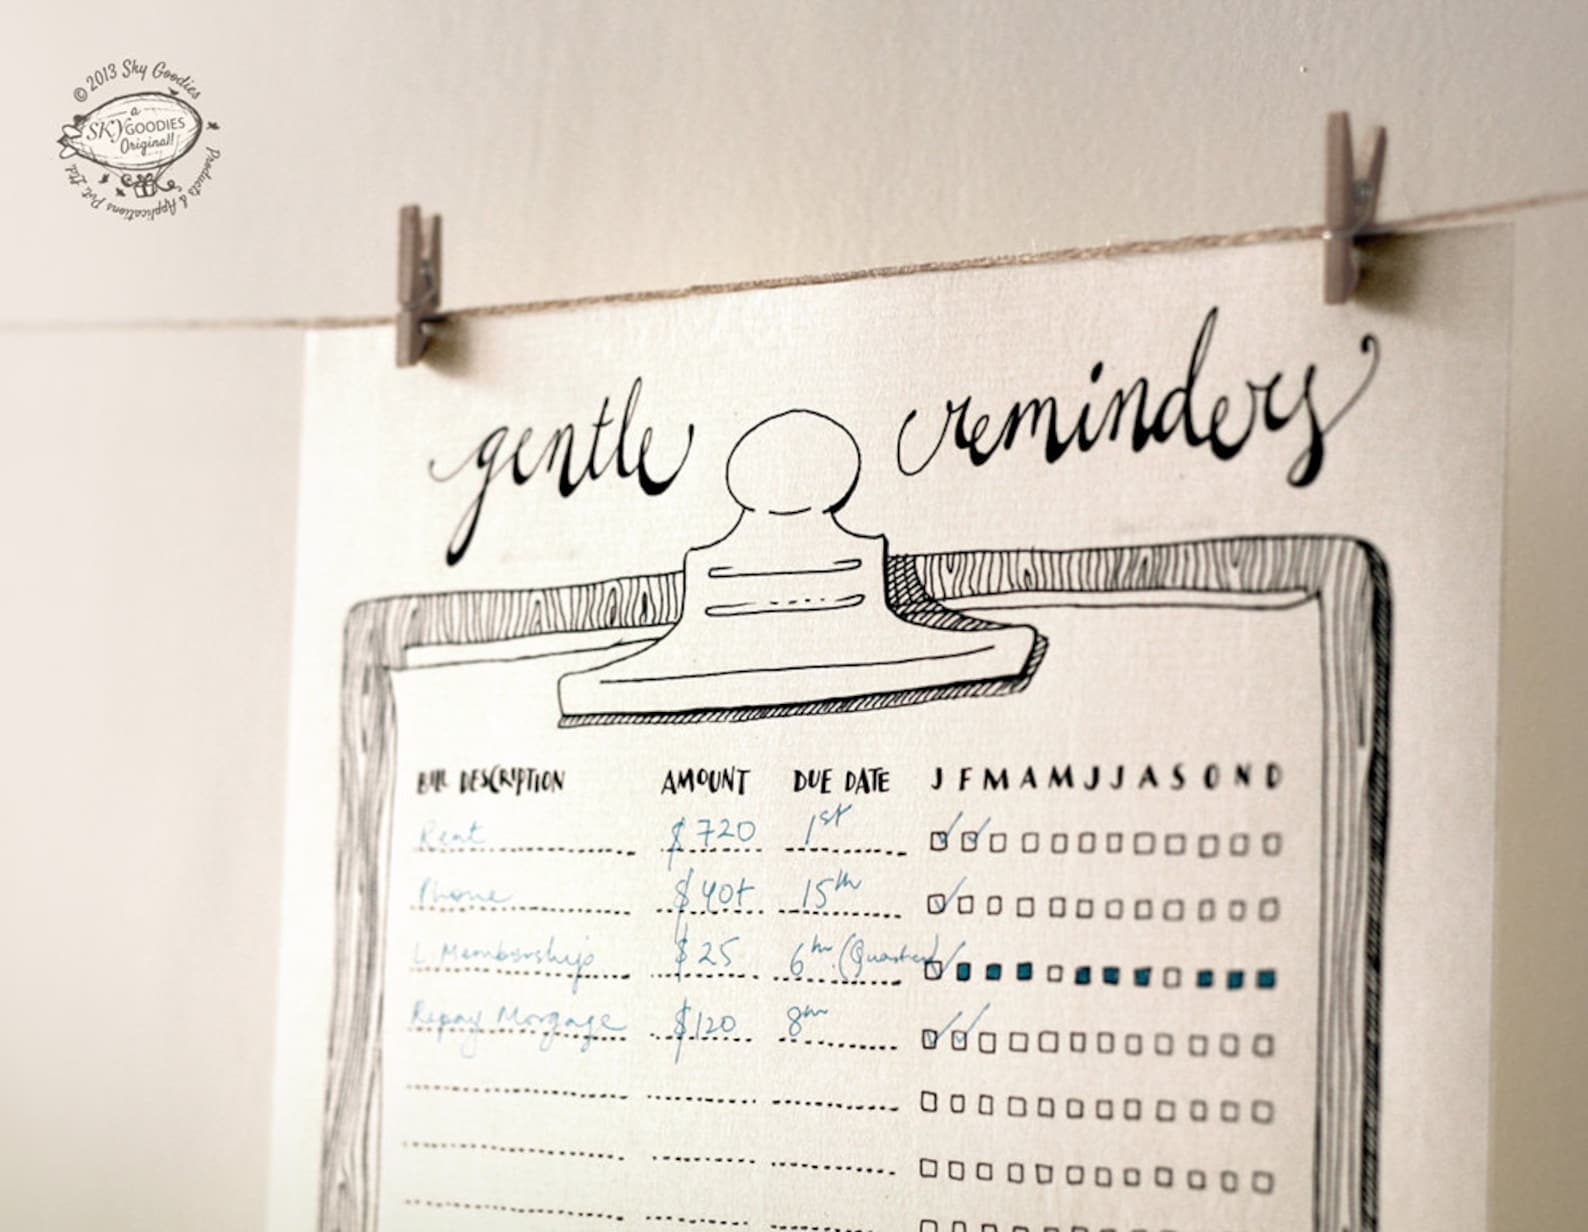 © 2013 Sky Goodies
a
SKYGOODIES
Original!
Products & Applications Pvt. Ltd.
gentle reminders
BILL DESCRIPTION AMOUNT DUE DATE J F M A M J J A S O N D
Rent $720 1st
Phone $40+ 15th
L Membership $25 6th (Quarterly)
Repay Morgage $120 8th